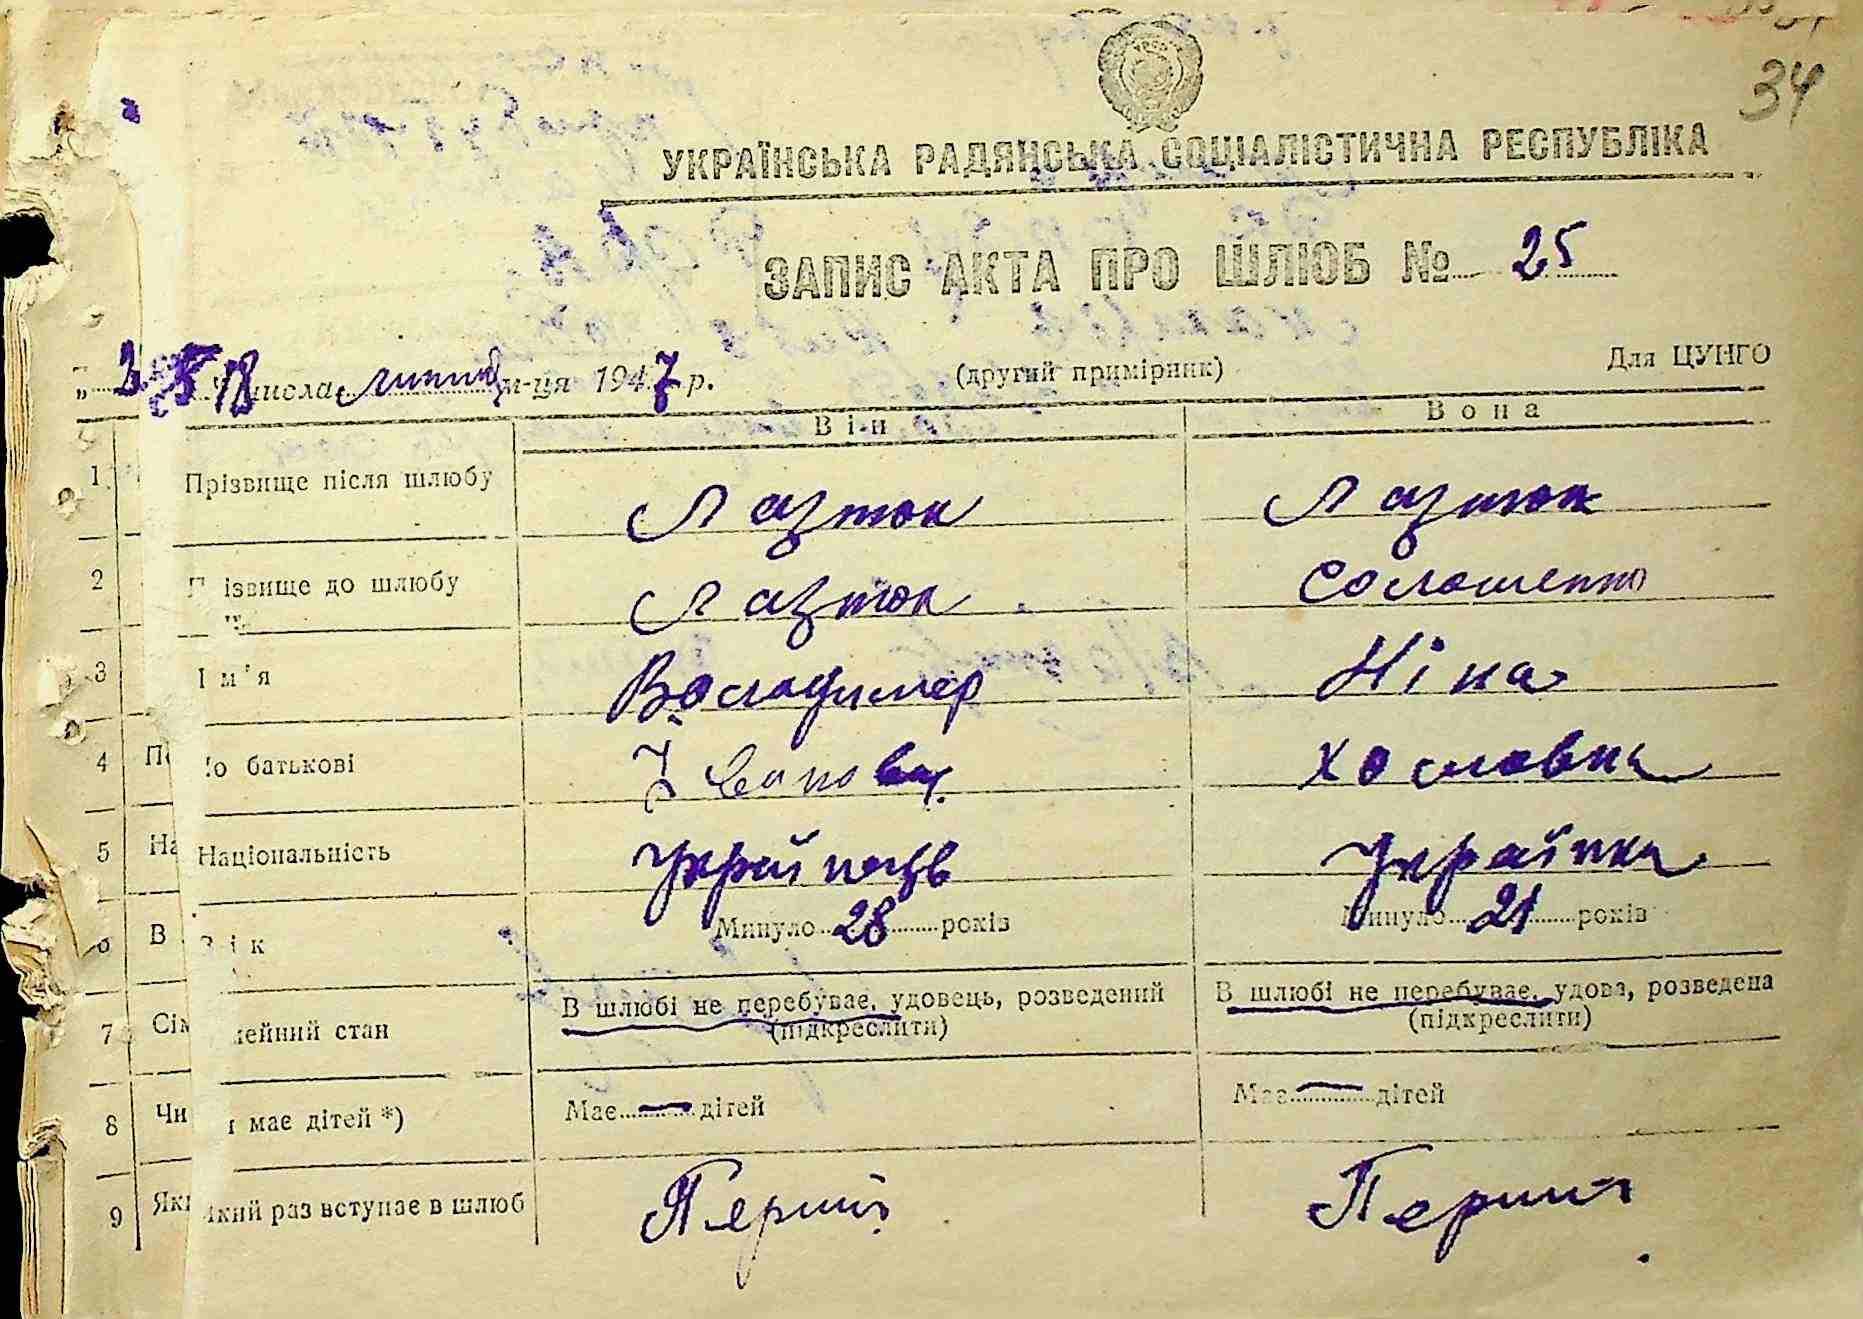 34
УКРАЇНСЬКА РАДЯНСЬКА СОЦІАЛІСТИЧНА РЕСПУБЛІКА
ЗАПИС АКТА ПРО ШЛЮБ № 25
18 числа липня м-ця 1947 р. (другий примірник) Для ЦУНГО
Він Вона
1 Прізвище після шлюбу Лазтюк Лазтюк
2 Прізвище до шлюбу Лазтюк Солошенко
3 Ім'я Володимер Ніна
4 По батькові Іванович Хословна
5 На Національність Українець Українка
6 В Вік Минуло 28 років Минуло 21 років
7 Сім мейний стан В шлюбі не перебуває, удовець, розведений (підкреслити) В шлюбі не перебуває, удова, розведена (підкреслити)
8 Чи має дітей *) Має — дітей Має — дітей
9 Який раз вступає в шлюб Перший Перший